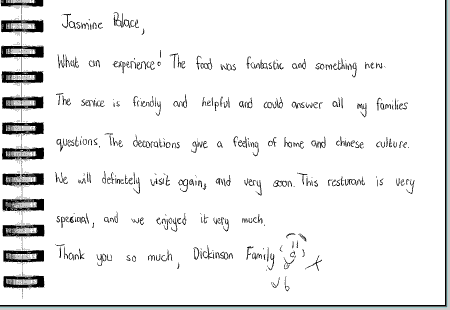 Jasmine Palace,
What an experience! The food was fantastic and something new.
The service is friendly and helpful and could answer all my families
questions. The decorations give a feeling of home and chinese culture.
We will definetely visit again, and very soon. This resturant is very
spesional, and we enjoyed it very much.
Thank you so much, Dickinson Family